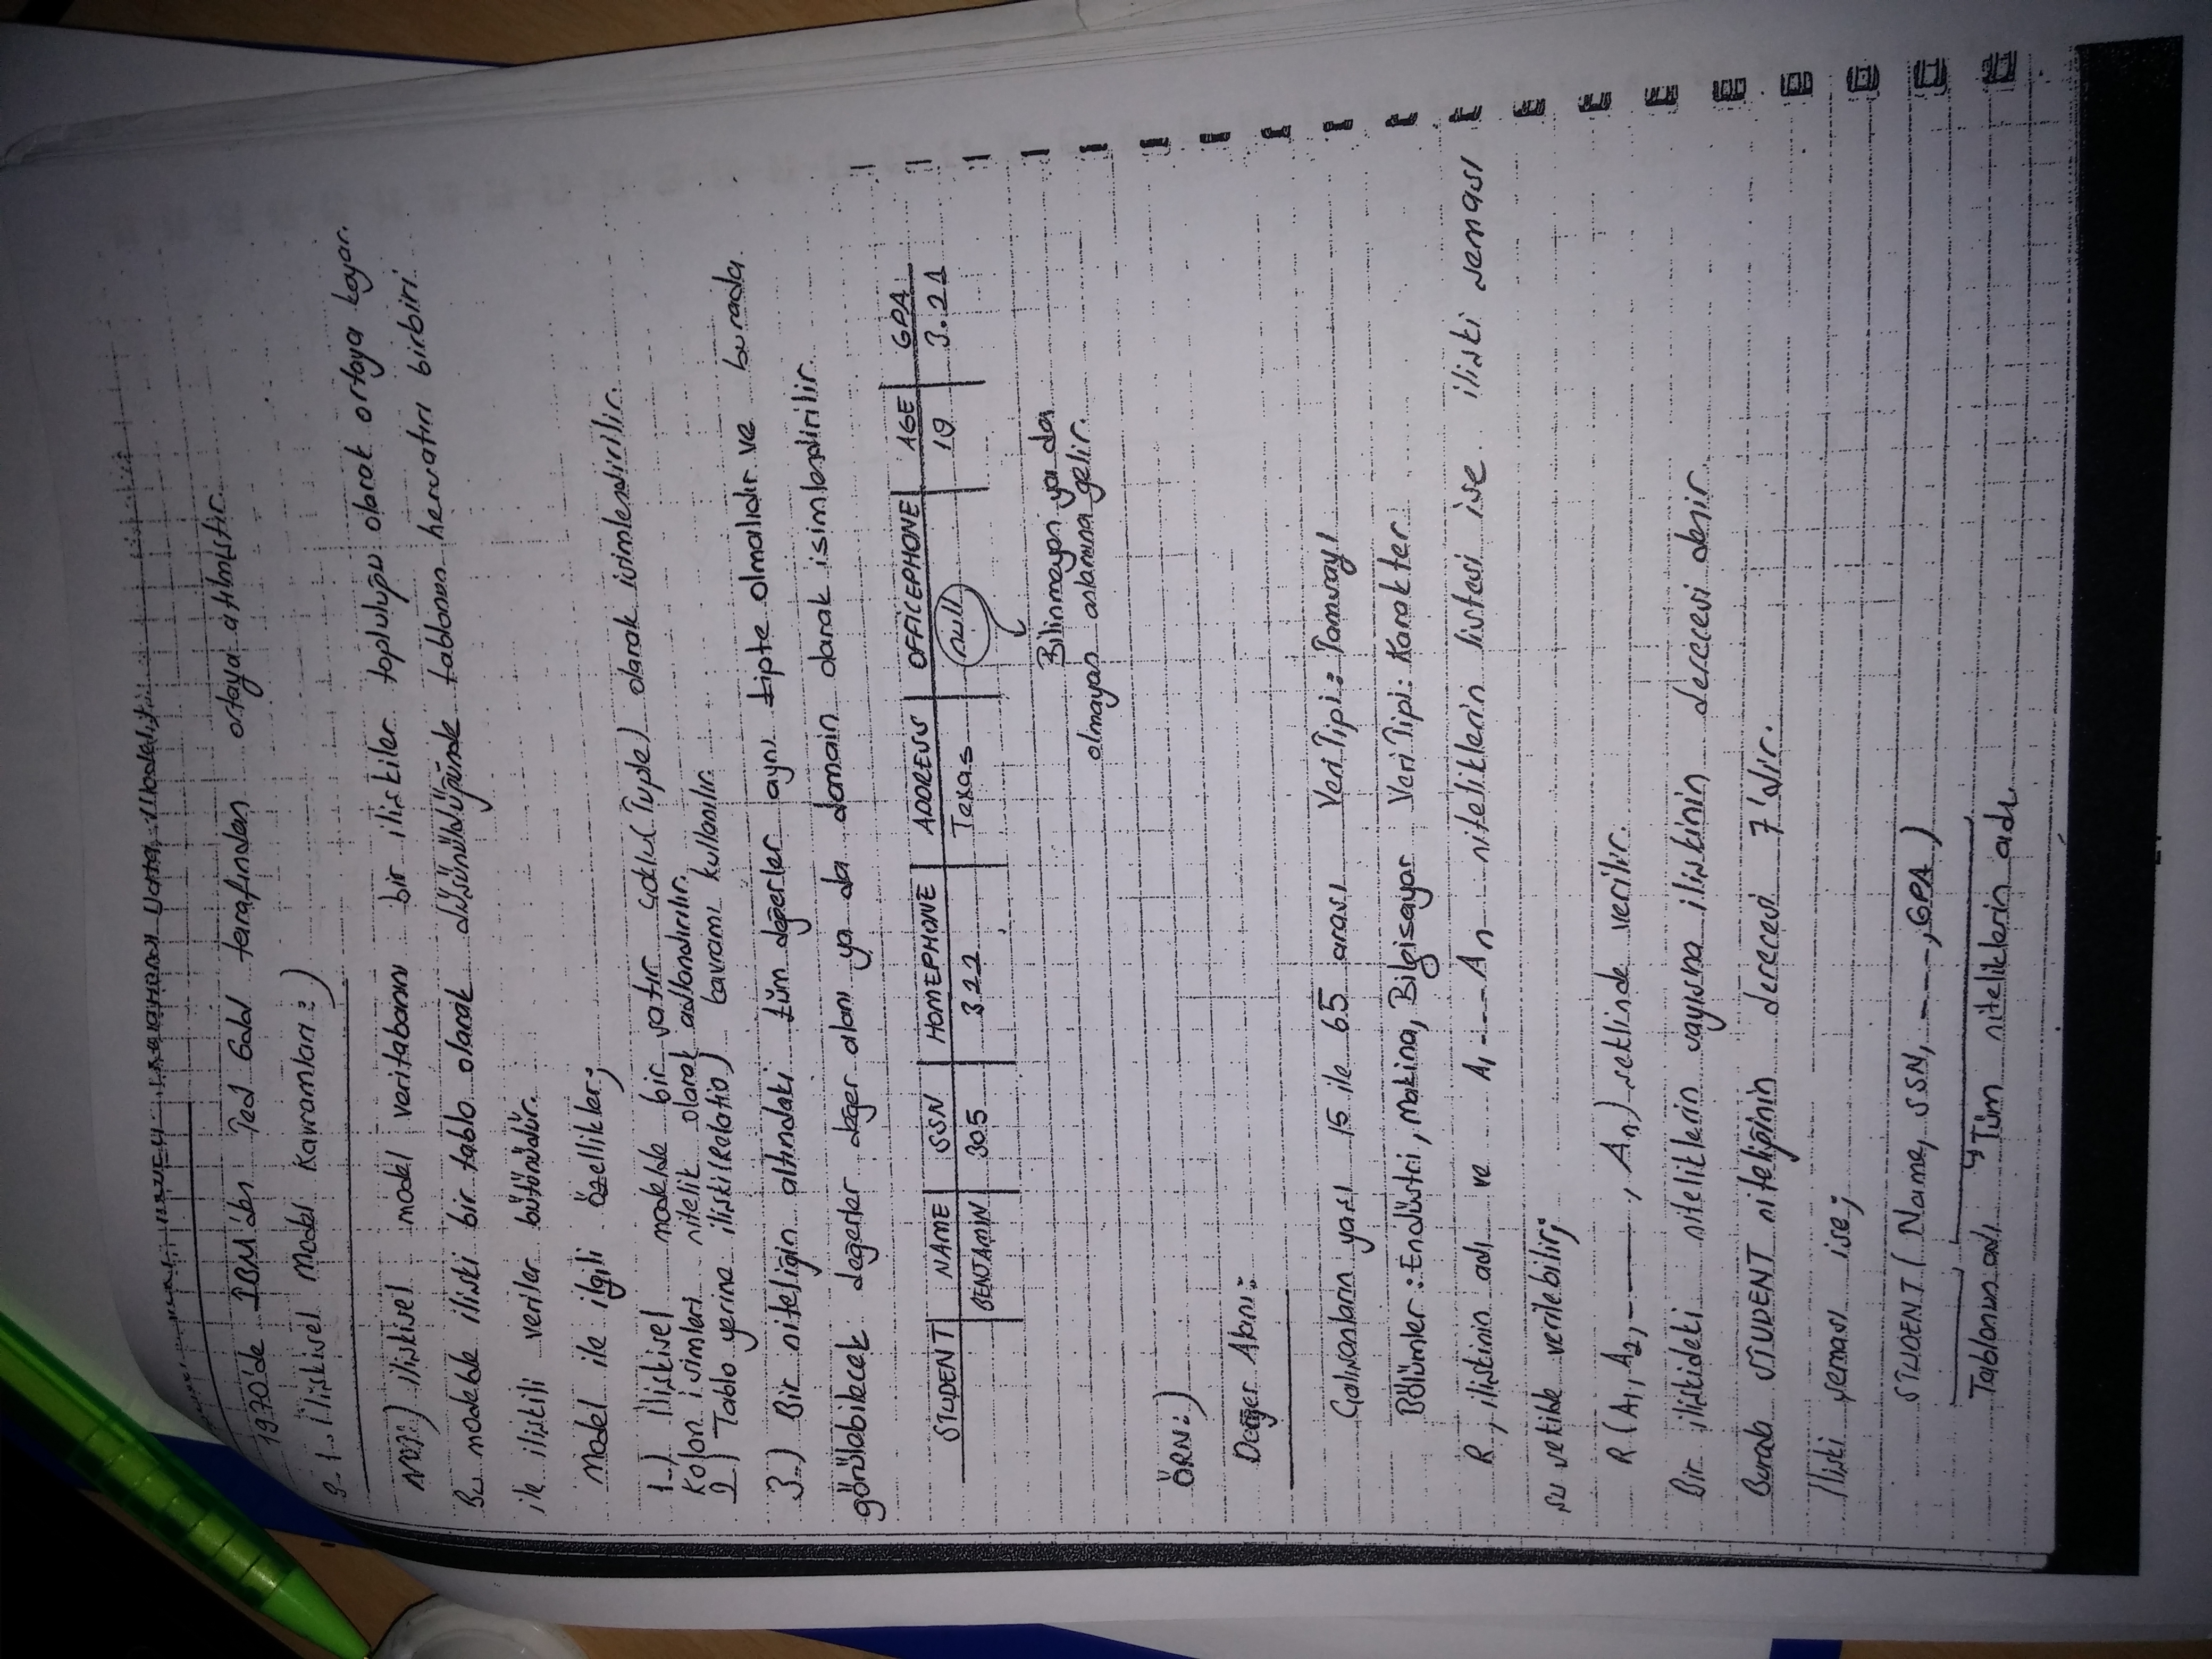 Data Modeli):
1970'de IBM'den Ted Codd tarafından ortaya atılmıştır.
3.1. İlişkisel Model Kavramları:)
NOT:) İlişkisel model veritabanını bir ilişkiler topluluğu olarak ortaya koyar.
Bu modelde ilişki bir tablo olarak düşünüldüğünde tablonun hersatırı birbiri
ile ilişkili veriler bütünüdür.
Model ile ilgili özellikler;
1-) İlişkisel modelde bir satır çoklu(Tuple) olarak isimlendirilir.
Kolon isimleri nitelik olarak adlandırılır.
2) Tablo yerine ilişki(Relatio) kavramı kullanılır.
3-) Bir niteliğin altındaki tüm değerler aynı tipte olmalıdır ve burada
görülebilecek değerler değer alanı ya da domain olarak isimlendirilir.
STUDENT NAME SSN HOMEPHONE ADDRESS OFFICEPHONE AGE GPA
BENJAMIN 305 322 Texas null 19 3.21
Bilinmeyen ya da
olmayan anlamına gelir.
ÖRN:)
Değer Alanı:
Çalışanların yaşı 15 ile 65 arası Veri Tipi: Tamsayı
Bölümler: Endüstri, Makina, Bilgisayar Veri Tipi: Karakter
R, ilişkinin adı ve A1 --- An niteliklerin listesi ise ilişki şeması
şu şekilde verilebilir;
R(A1, A2, ----, An) şeklinde verilir.
Bir ilişkideki niteliklerin sayısına ilişkinin derecesi denir.
Burada STUDENT niteliğinin derecesi 7'dir.
İlişki şeması ise;
STUDENT( Name, SSN, ---, GPA )
Tablonun adı Tüm niteliklerin adı